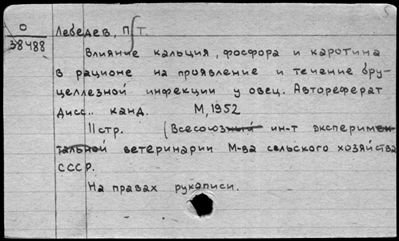 О
38488
Лебедев, П.Т.
Влияние кальция, фосфора и каротина
в рационе на проявление и течение бру-
целлезной инфекции у овец. Автореферат
Дисс.. канд. М, 1952
11стр. (Всесоюзный ин-т эксперимен-
тальной ветеринарии М-ва сельского хозяйства
СССР.
На правах рукописи.